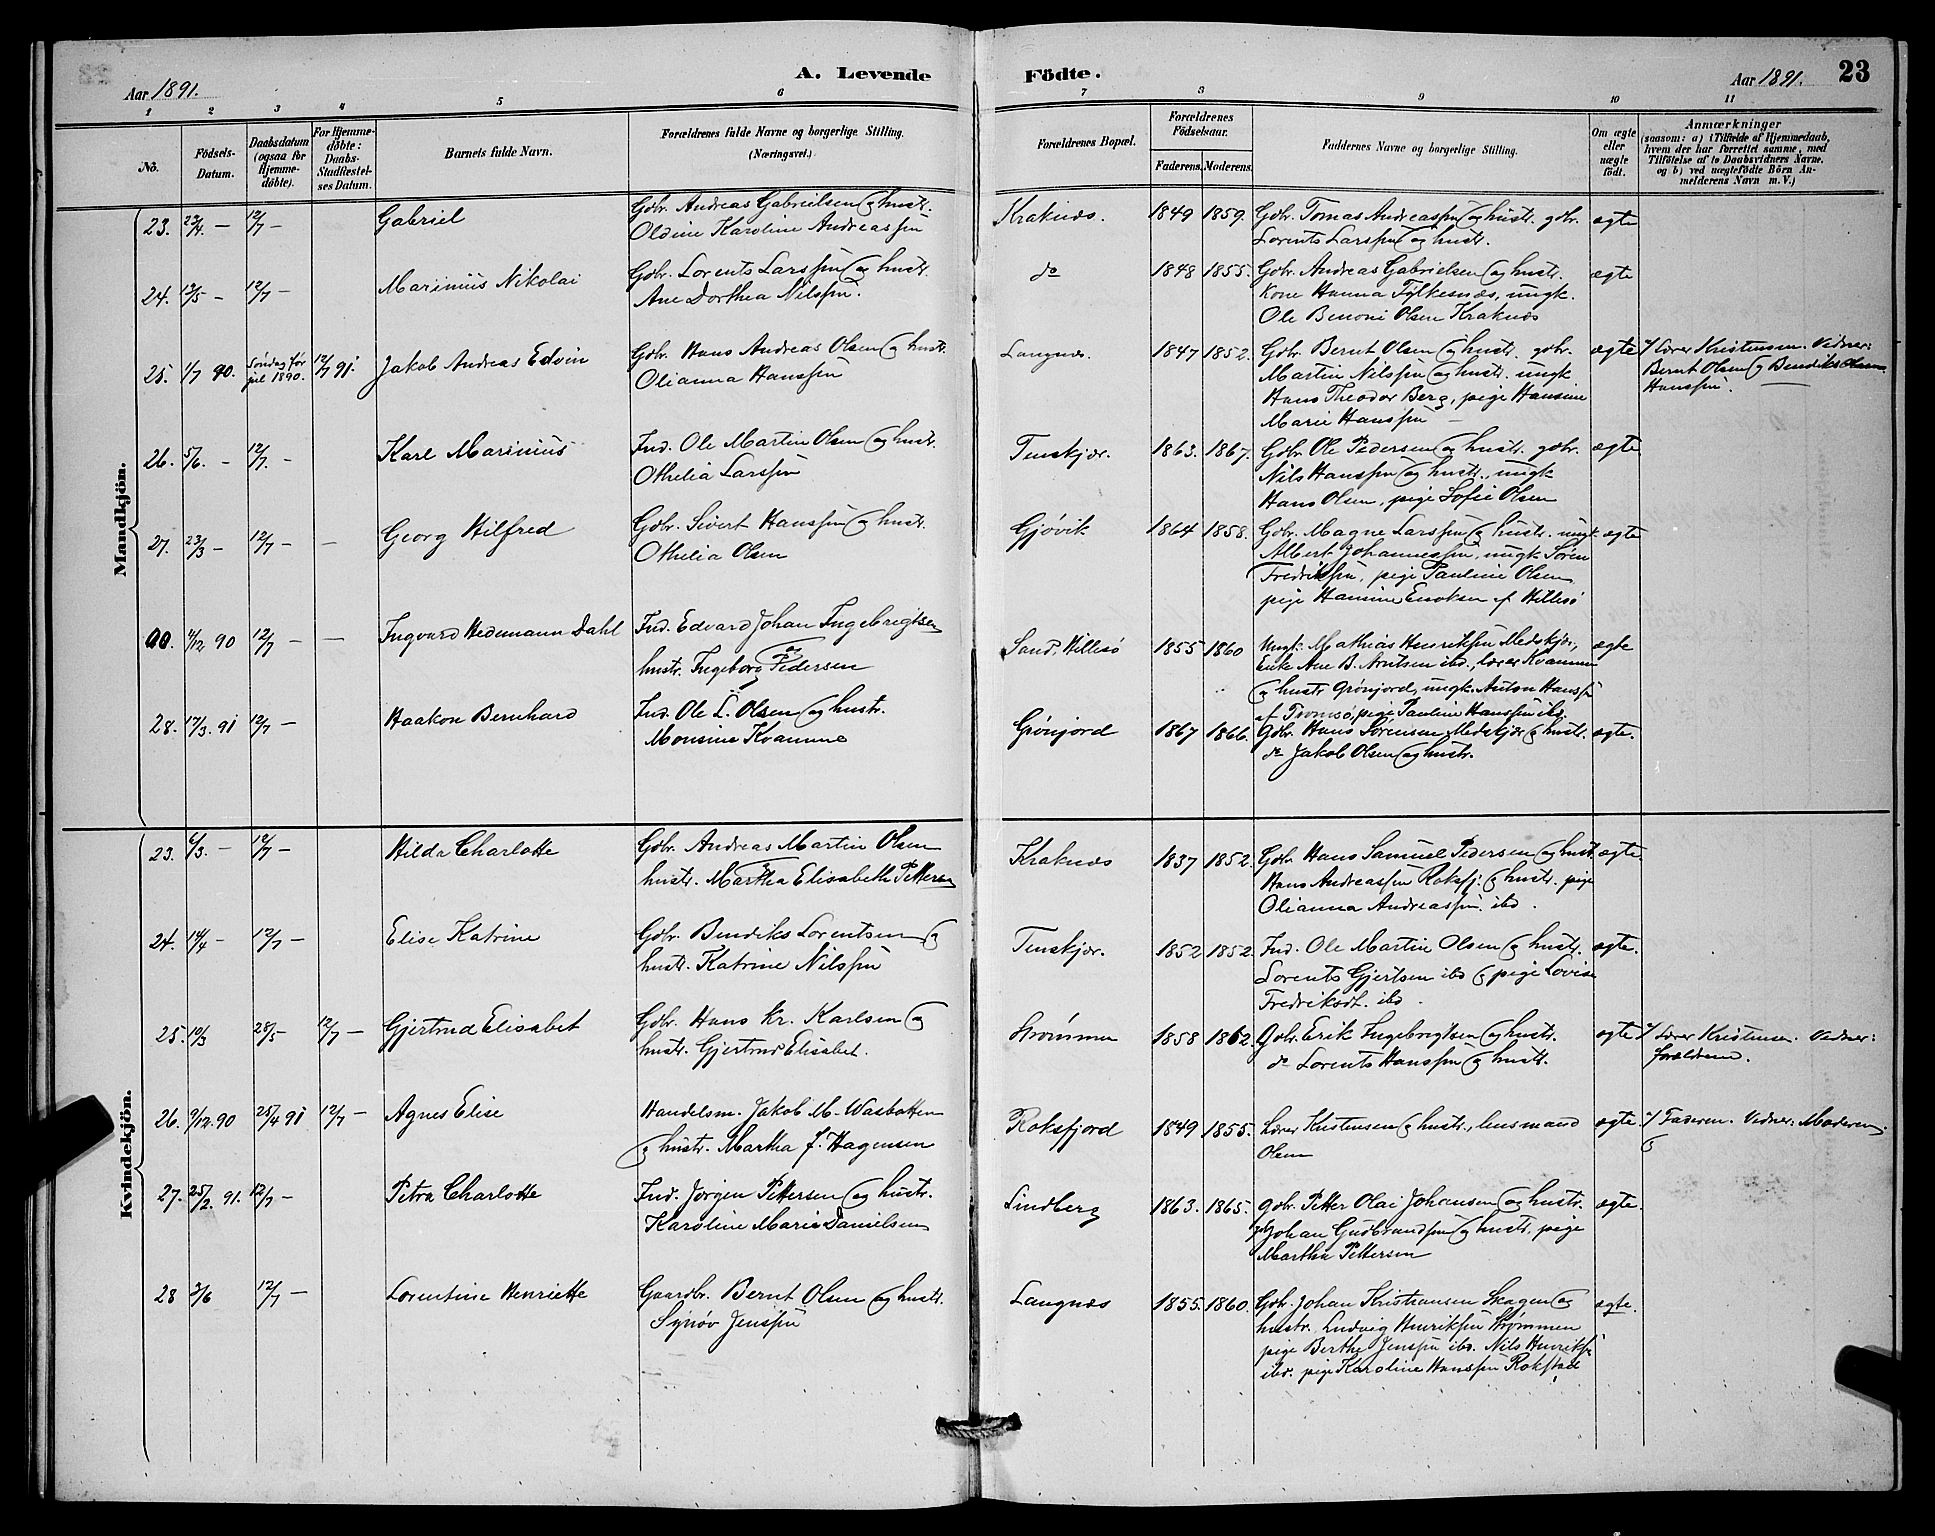 A. Levende Födte.
23
Aar 1891.
Aar 1891.
1 2 3 4 5 6 7 8 9 10 11
No.
Födsels-Datum.
Daabsdatum (ogsaa for Hjemme-döbte).
For Hjemme-döbte: Daabs-Stadfæstel-ses Datum.
Barnets fulde Navn.
Forældrenes fulde Navne og borgerlige Stilling. (Næringsvei.)
Forældrenes Bopæl.
Forældrenes Födselsaar.
Faderens. Moderens.
Faddernes Navne og borgerlige Stilling.
Om ægte eller uægte födt.
Anmærkninger
(saasom: a) i Tilfælde af Hjemmedaab,
hvem der har forrettet samme, med
Tilföielse af to Daabsvidners Navne,
og b) ved uægtefödte Börn An-
melderens Navn m. V.)
Mandkjön.
23. 23/4. — 12/7 — Gabriel Gdbr. Andreas Gabrielsen og hustr. Kraknæs. 1849 1859. Gdbr. Tomas Andreassen og hustr. gdbr. ægte
Oldine Karoline Andreassen Lorents Larssen og hustr.
24. 12/5 — 12/7 — Marinius Nikolai Gdbr. Lorents Larssen og hustr. do 1848 1855. Gdbr. Andreas Gabrielsen og hustr. ægte
Ane Dorthea Nilssen. Kone Hanna Fylkesnæs, ungk.
Ole Benoni Olsen Kraknæs
25. 1/7 90. Söndag før jul 1890. 12/7 91. Jakob Andreas Edvin Gdbr. Hans Andreas Olsen og hustr. Langnæs. 1847 1852. Gdbr. Bernt Olsen og hustr. gdbr. ægte v/ Lærer Kristensen. Vidner:
Olianna Hanssen Martin Nilssen og hustr. ungk Bernt Olsen og Bendiks
Hans Theodor Berg, pige Hansine Hanssen.
Marie Hanssen —
26. 5/6. — 12/7. — Karl Marinius Ind. Ole Martin Olsen og hustr. Tenskjær. 1863. 1867. Gdbr. Ole Pedersen og hustr. gdbr. ægte
Othelia Larssen Nils Hanssen og hustr., ungk
Hans Olsen, pige Sofie Olsen
27. 23/3 — 12/7 — — Georg Hilfred Gdbr. Sivert Hanssen og hustr. Gjøvik 1864 1858. Gdbr. Magne Larssen og hustr. ungk. ægte
Othelia Olsen Albert Johannessen, ungk Søren
Fredrikssen, pige Pauline Olsen
pige Hansine Enoksen af Hillesø
00. 4/12 90 12/7 — — Ingvard Hedemann Dahl Ind. Edvard Johan Ingebrigtsen Sand, Hillesø 1855 1860 Ungk: Mathias Henrikssen Medskjær, ægte
og hustr. Ingeborg Pedersen Enke Ane B. Arntsen ibd., lærer Kvamme
og hustr Grönjord, ungk. Anton Hanssen
af Tromsö, pige Pauline Hanssen ibd.
28. 17/3. 91 12/7 — Haakon Bernhard Ind. Ole L. Olsen og hustr. Grönjord 1867 1866. Gdbr. Hans Sörensen Medskjær og hustr. ægte.
Monsine Kvamme do Jakob Olsen og hustr.
Kvindekjön.
23. 6/3. — 12/7 — Hilda Charlotte Gdbr. Andreas Martin Olsen Kraknæs 1837 1852. Gdbr. Hans Samuel Pedersen og hust. ægte.
og hustr. Martha Elisabeth Pettersen Hans Andreassen Roksfj. og hustr. pige
Olianna Andreassen. ibd.
24. 14/4 — 12/7 — Elise Katrine Gdbr. Bendiks Lorentsen og Tenskjær. 1852 1852. Ind. Ole Martin Olsen og hustr. ægte.
hustr. Katrine Nilssen Lorents Gjertsen ibd og pige Lovise
Fredriksdt. ibd.
25. 10/3 28/5 — 12/7 — Gjertrud Elisabet Gdbr. Hans Kr. Karlsen og Strömmen 1858 1862. Gdbr. Erik Ingebrigtsen og hustr. ægte v/ Lærer Kristensen. Vidner:
hustr. Gjertrud Elisabet. do Lorents Hanssen og hustr. forældrene.
26. 9/12. 90 25/4 91 12/7 — Agnes Elise Handelsm. Jakob M. Wasbotten Roksfjord 1849 1855. Lærer Kristensen og hustr., lensmand ægte. v/ Faderen. Vidner: Moderen
og hustr. Martha J. Hagensen Olsen og
27. 25/2. 91. 12/7 — Petra Charlotte Ind. Jörgen Pettersen og hustr. Lindberg 1863. 1865. Gdbr. Petter Olai Johansen og hustr. ægte.
Karoline Marie Danielsen Johan Gudbrandsen og hustr. pige
Martha Pettersen
28 3/6 12/7 — Lorentine Henriette Gaardbr. Bernt Olsen og hustr. Langnæs 1855. 1860. Gdbr. Johan Kristiansen Skagen og ægte.
Synöv Jenssen hustr. Ludvig Henrikssen Strömmen
pige Berthe Jenssen ibd. Nils Henrikssen
ibd. pige Karoline Hanssen Rokstad